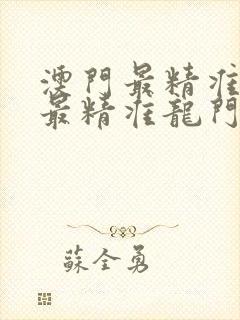 澳門最精准
最精准龍門
蘇全勇